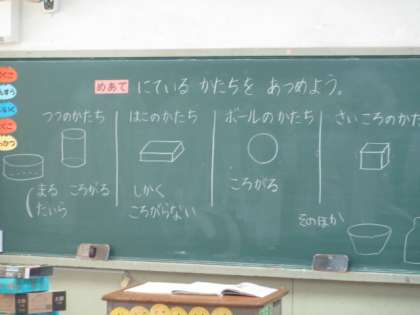 めあて にている かたちを あつめよう。
つつのかたち
はこのかたち
ボールのかたち
さいころのかた
まる ころがる
たいら
しかく
ころがらない
ころがる
そのほか